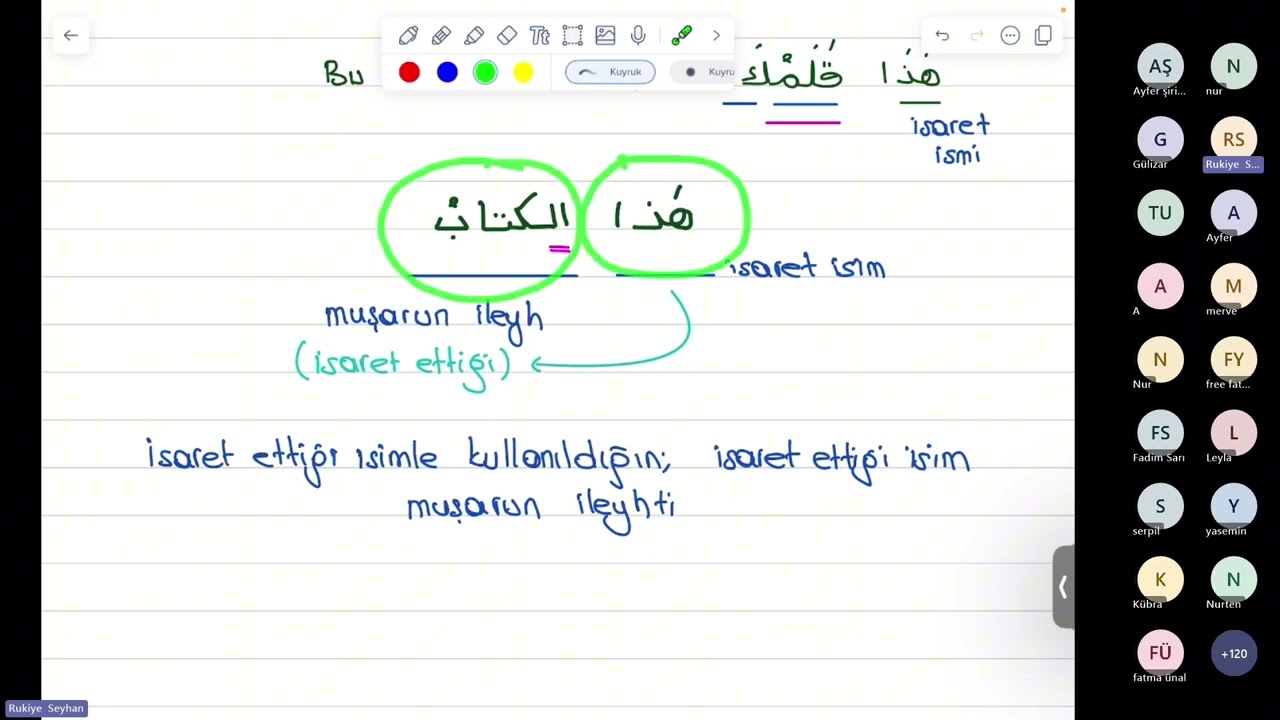 Tt
Kuyruk
Kuyru
Bu
هَٰذَا قَلَمُكَ
isaret
ismi
هَٰذا الكتابُ
isaret isim
muşarun ileyh
(isaret ettiği)
isaret ettiği isimle kullanıldığın; isaret ettiği isim
muşarun ileyhti
Rukiye Seyhan
AŞ N
Ayfer şiri... nur
G RS
Gülizar Rukiye S...
TU A
Ayfer
A M
A merve
N FY
Nur free fat...
FS L
Fadim Sarı Leyla
S Y
serpil yasemin
K N
Kübra Nurten
FÜ +120
fatma ünal